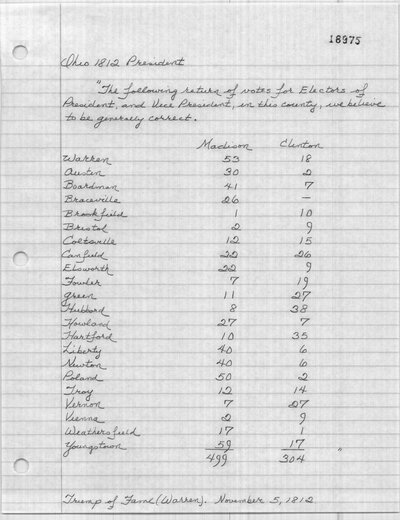 18975
Ohio 1812 President
"The following return of votes for Electors of
President, and Vice President, in this county, we believe
to be generally correct.
Madison Clinton
Warren 53 18
Austin 30 2
Boardman 41 7
Braceville 26 —
Brookfield 1 10
Bristol 2 9
Coitsville 12 15
Canfield 22 26
Elsworth 22 9
Fowler 7 19
Green 11 27
Hubbard 8 38
Howland 27 7
Hartford 10 35
Liberty 40 6
Newton 40 6
Poland 50 2
Troy 12 14
Vernon 7 27
Vienna 2 9
Weathersfield 17 1
Youngstown 59 17
499 304 "
Trump of Fame (Warren). November 5, 1812